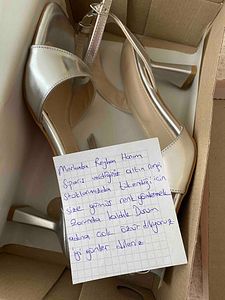 Merhaba Reyhan Hanım
Sipariş verdiğiniz altın rengi
stoklarımızda tükendiği için
size gümüş renk göndermek
zorunda kaldık Durum
adına çok özür diliyoruz
iyi günler dileriz